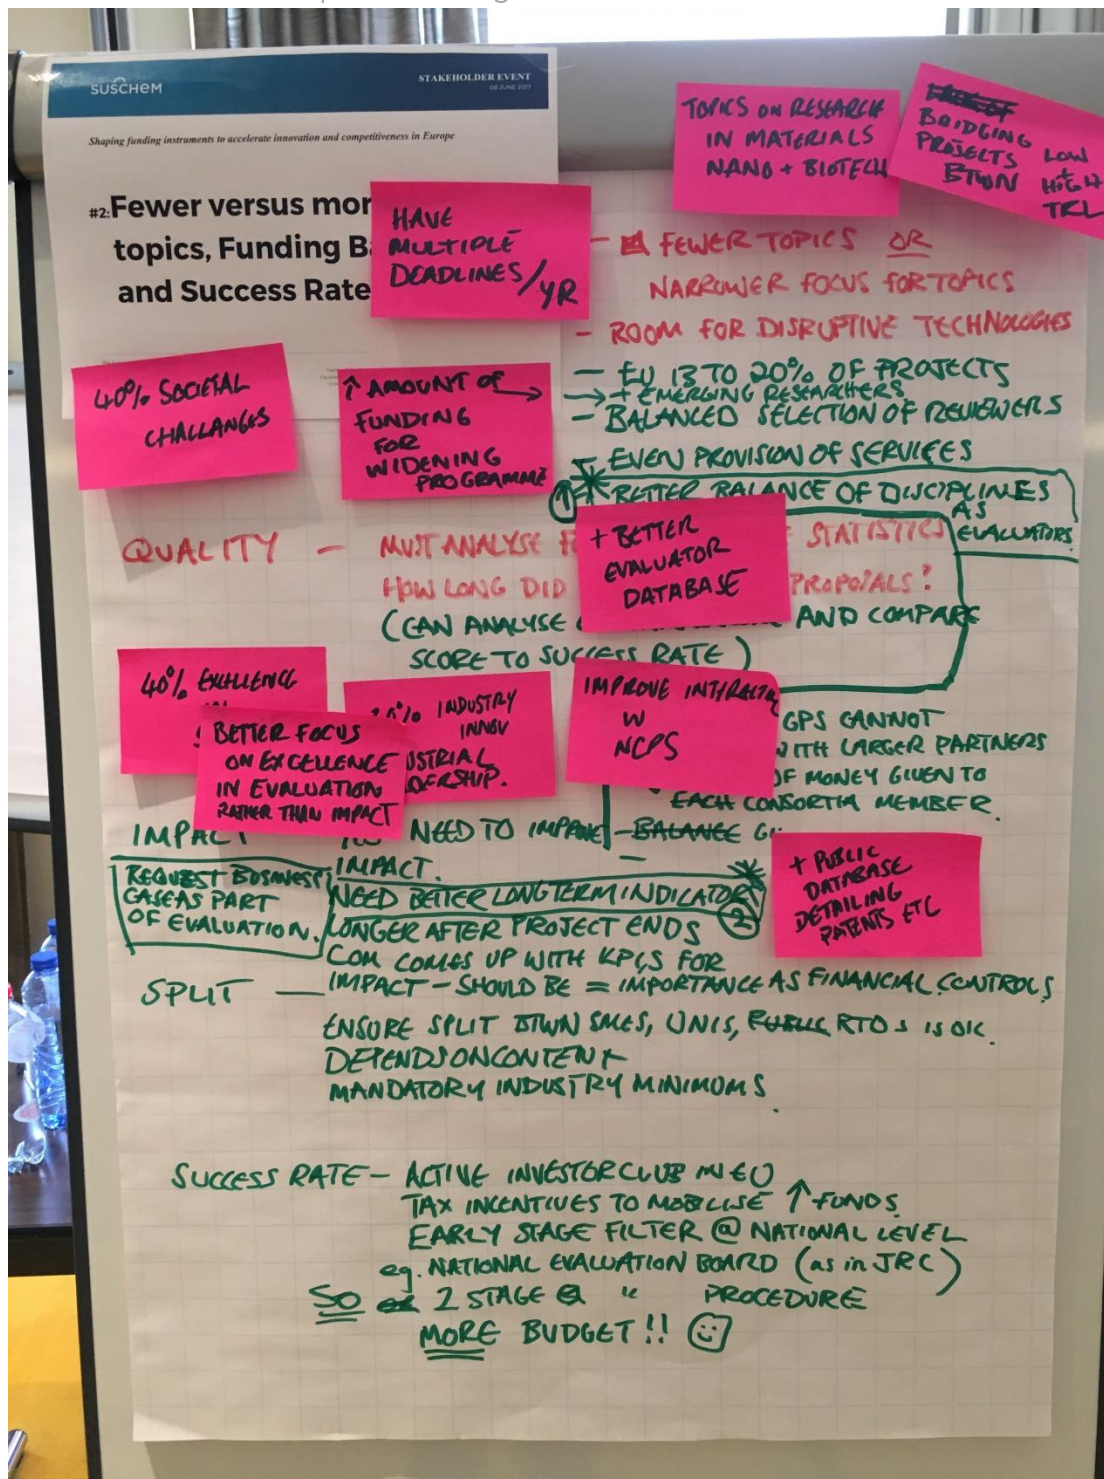 SUSCHEM
STAKEHOLDER EVENT
08 JUNE 2017
Shaping funding instruments to accelerate innovation and competitiveness in Europe
#2: Fewer versus mor
topics, Funding Ba
and Success Rate
HAVE
MULTIPLE
DEADLINES/YR
TOPICS ON RESEARCH
IN MATERIALS
NANO + BIOTECH
BRIDGING
PROJECTS
BTWN LOW
+
HIGH
TRL
- FEWER TOPICS OR
NARROWER FOCUS FOR TOPICS
- ROOM FOR DISRUPTIVE TECHNOLOGIES
- EU 13 TO 20% OF PROJECTS
→ + EMERGING RESEARCHERS
- BALANCED SELECTION OF REVIEWERS
- EVEN PROVISION OF SERVICES
① BETTER BALANCE OF DISCIPLINES
AS
EVALUATORS.
40% SOCIETAL
CHALLANGES
↑ AMOUNT OF →
FUNDING
FOR
WIDENING
PROGRAMME
QUALITY - MUST ANALYSE F STATISTICS
HOW LONG DID PROPOSALS?
(CAN ANALYSE AND COMPARE
SCORE TO SUCCESS RATE)
+ BETTER
EVALUATOR
DATABASE
40% EXCELLENCE
% INDUSTRY
INNOV
USTRIAL
DERSHIP.
BETTER FOCUS
ON EXCELLENCE
IN EVALUATION
RATHER THAN IMPACT
IMPROVE INTERACTION
W
NCPS
GPS CANNOT
WITH LARGER PARTNERS
OF MONEY GIVEN TO
EACH CONSORTIA MEMBER.
IMPACT NEED TO IMPROVE - BALANCE
IMPACT.
REQUEST BUSINESS
CASE AS PART
OF EVALUATION.
NEED BETTER LONG TERM INDICATORS
②
LONGER AFTER PROJECT ENDS
COM COMES UP WITH KPIS FOR
IMPACT - SHOULD BE = IMPORTANCE AS FINANCIAL CONTROLS
+ PUBLIC
DATABASE
DETAILING
PATENTS ETC
SPLIT —
ENSURE SPLIT BTWN SMES, UNIS, PUBLIC RTOS IS OK.
DEPENDS ON CONTENT
MANDATORY INDUSTRY MINIMUMS.
SUCCESS RATE - ACTIVE INVESTOR CLUB IN EU
TAX INCENTIVES TO MOBILISE ↑ FUNDS
EARLY STAGE FILTER @ NATIONAL LEVEL
eg. NATIONAL EVALUATION BOARD (as in JRC)
SO 2 STAGE " PROCEDURE
MORE BUDGET!!